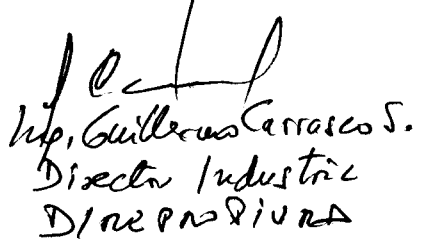 Ing. Guillermo Carrasco S.
Director Industria
DIREPRO PIURA